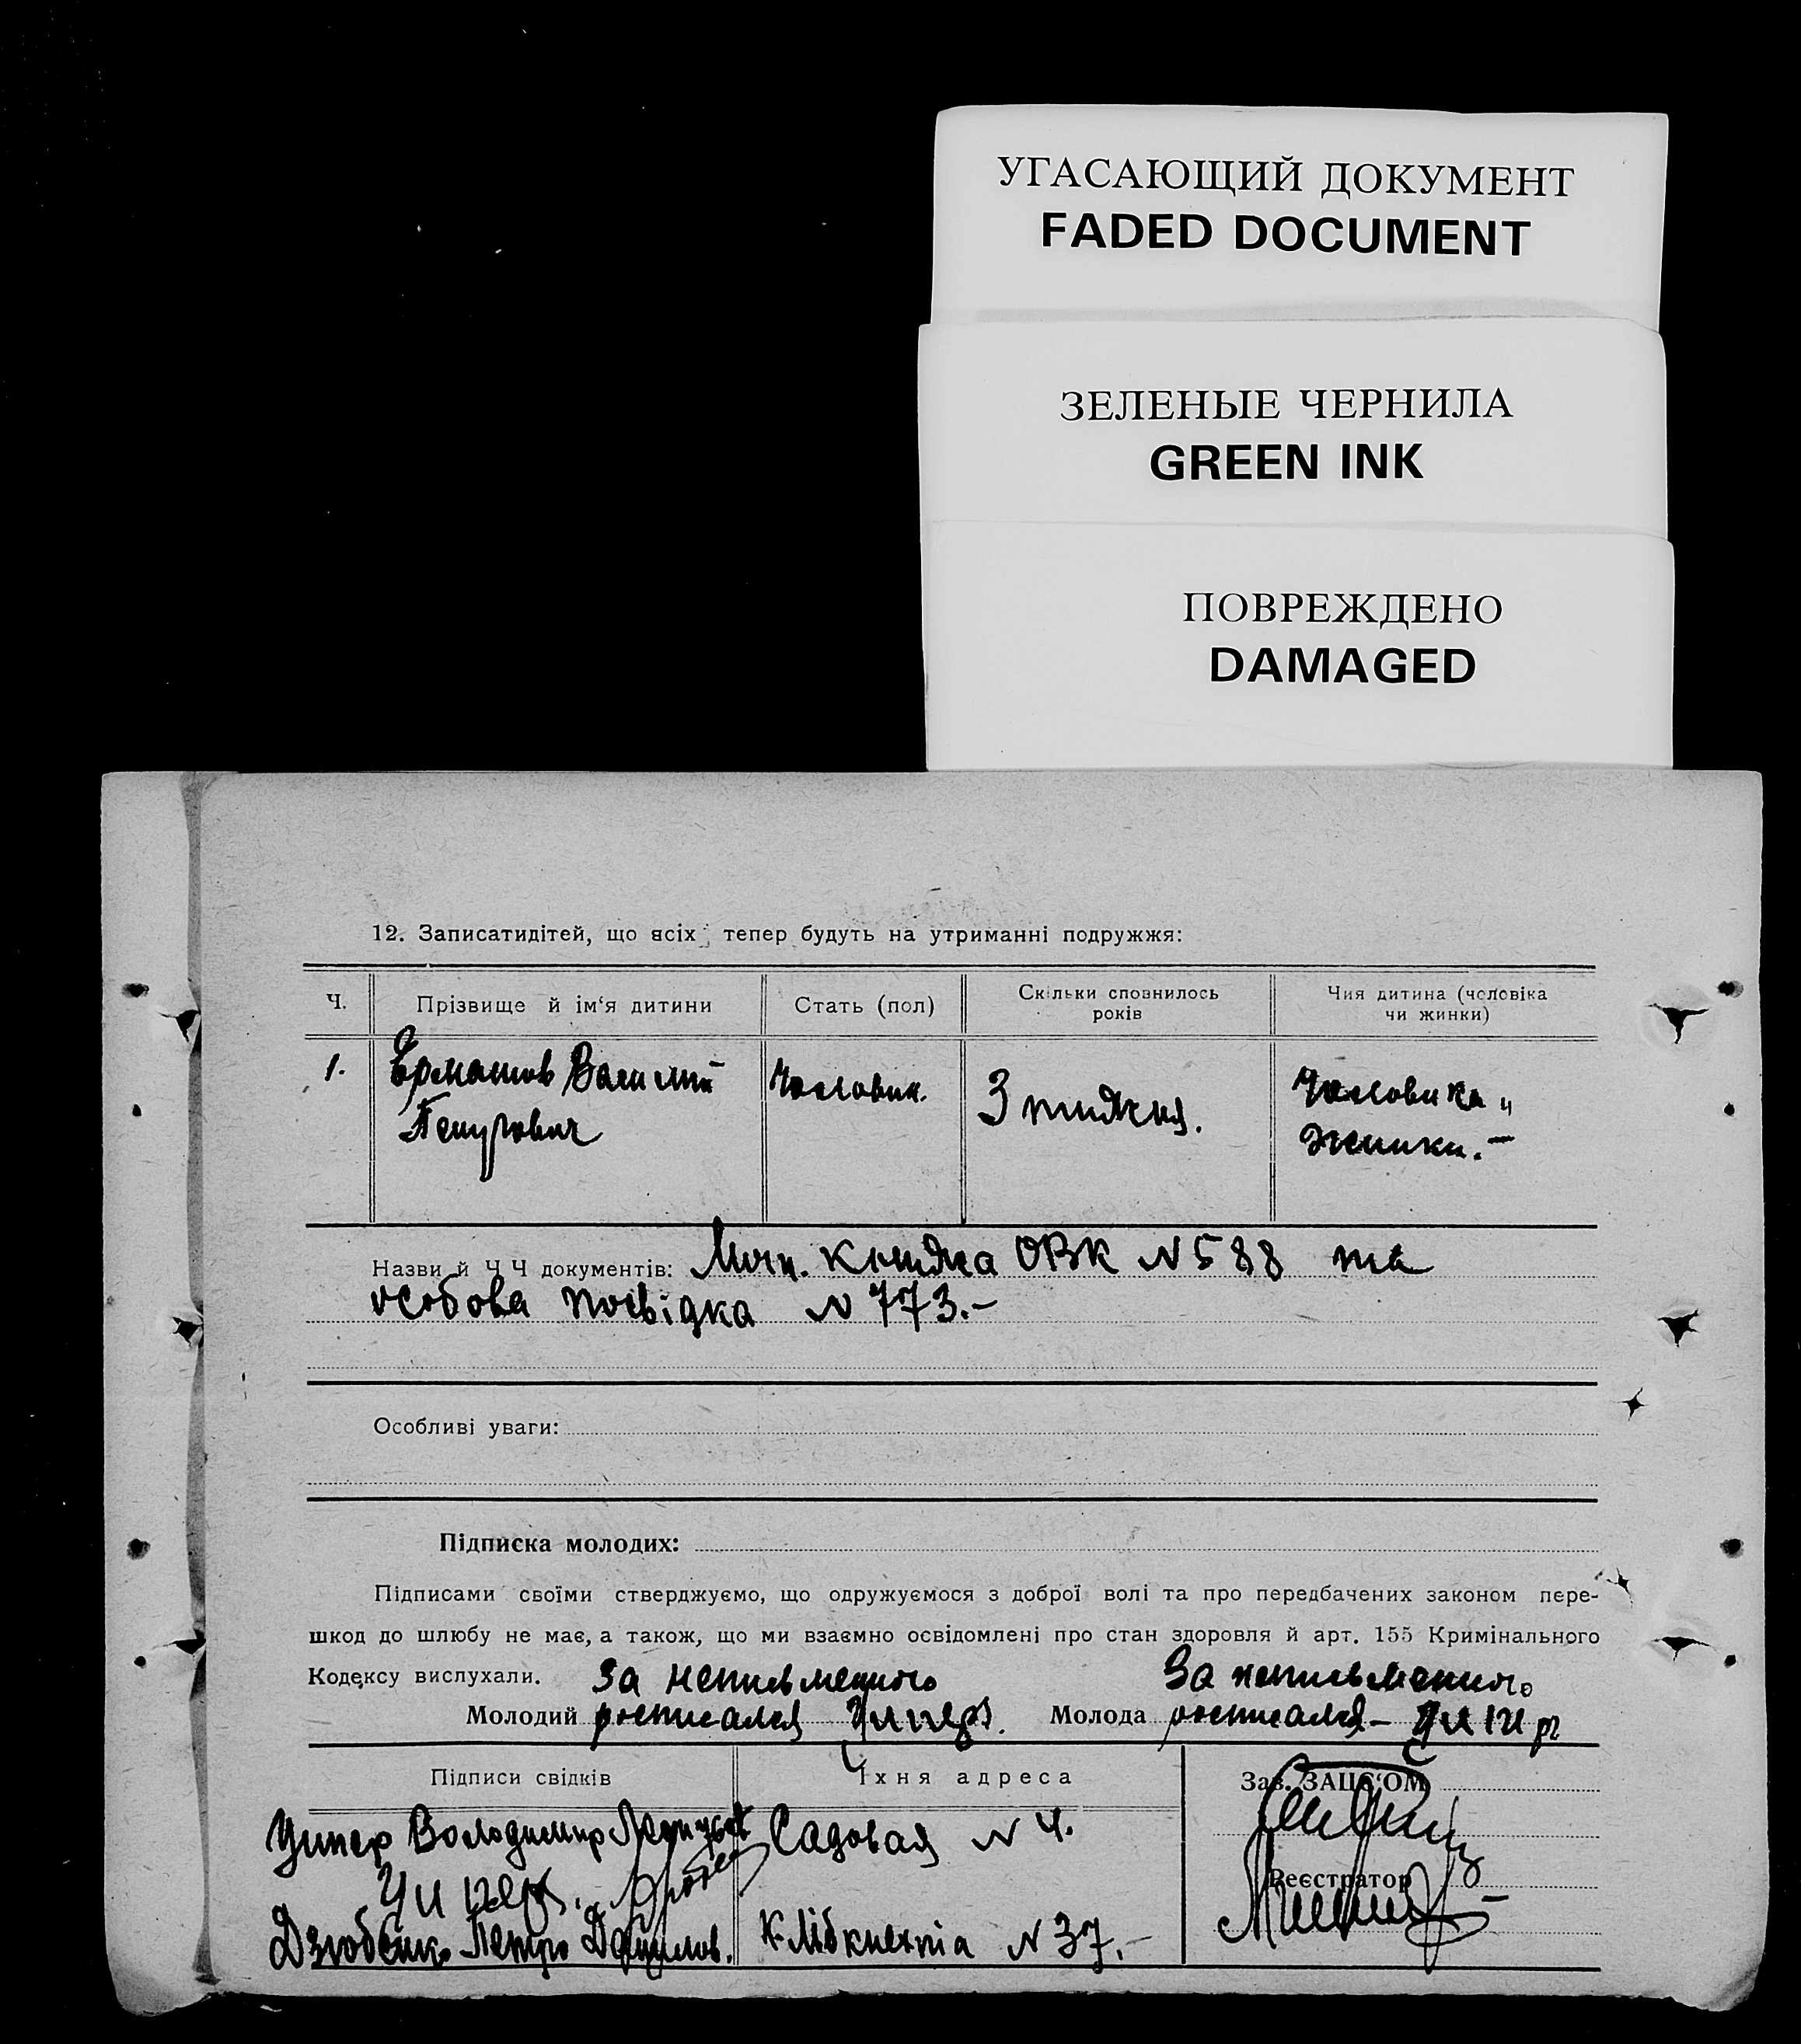 УГАСАЮЩИЙ ДОКУМЕНТ
FADED DOCUMENT
ЗЕЛЕНЫЕ ЧЕРНИЛА
GREEN INK
ПОВРЕЖДЕНО
DAMAGED
12. Записатидітей, що всіх тепер будуть на утриманні подружжя:
Ч. Прізвище й ім‘я дитини Стать (пол) Скільки сповнилось років Чия дитина (чоловіка чи жинки)
1. Ермашов Василий Чолович. 3 тижня. Чоловика и
Петрович жинки.-
Назви й Ч Ч документів: книжка ОВК № 588 та
особова посвідка № 773.-
Особливі уваги:
Підписка молодих:
Підписами своїми стверджуємо, що одружуємося з доброї волі та про передбачених законом пере-
шкод до шлюбу не має, а також, що ми взаємно освідомлені про стан здоровля й арт. 155 Кримінального
Кодексу вислухали. За неписьменного За неписьменного
Молодий росписался Молода росписался-
Підписи свідків Їхня адреса Зав. ЗАЦС‘ОМ
Володимир Садовая № 4.
Реєстратор
Петро Данилов. К. Лібкнехта № 37.-